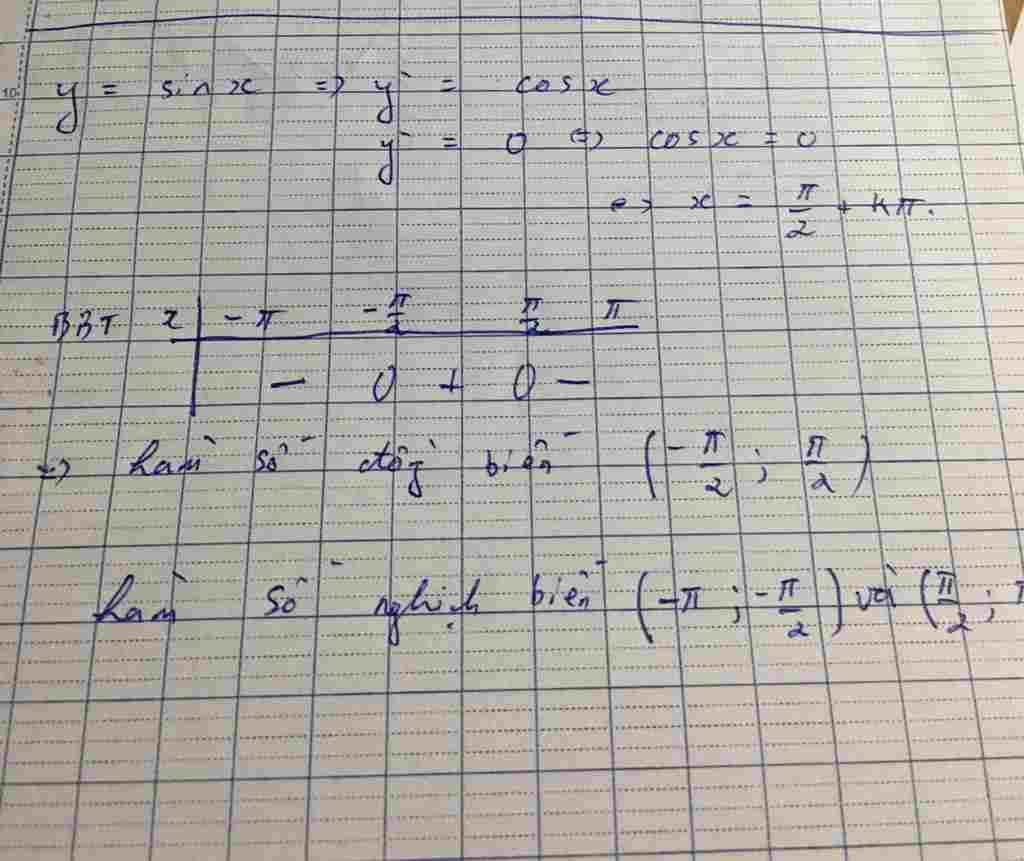 10
y = sin x => y' = cos x
y' = 0 <=> cos x = 0
<=> x = π/2 + kπ.
BBT x | -π -π/2 π/2 π
- 0 + 0 -
=> hàm số đồg biến (-π/2 ; π/2)
hàm số nghịch biến (-π ; -π/2) và (π/2 ; π